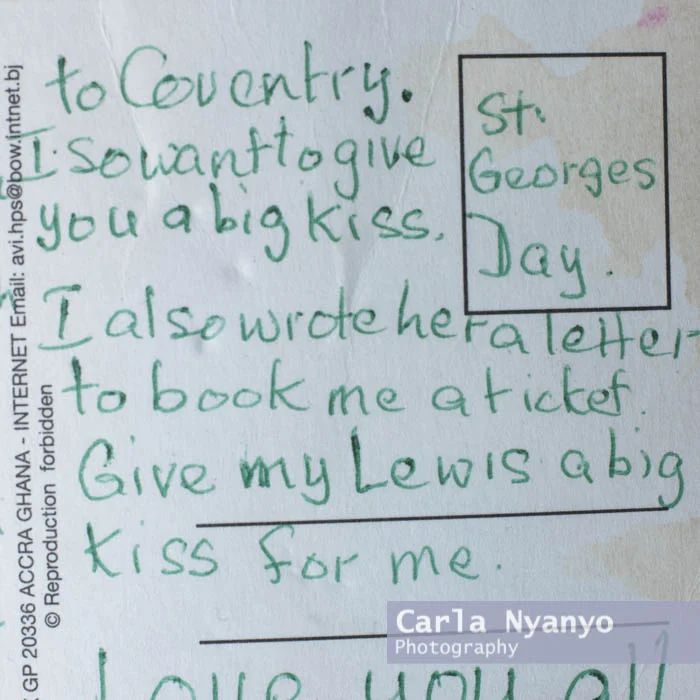 to Coventry.
I so want to give
you a big kiss.
I also wrote her a letter
to book me a ticket.
Give my Lewis a big
kiss for me.
Love you all
St.
Georges
Day.
GP 20336 ACCRA GHANA - INTERNET Email: avi.hps@bow.intnet.bj
© Reproduction forbidden
Carla Nyanyo
Photography